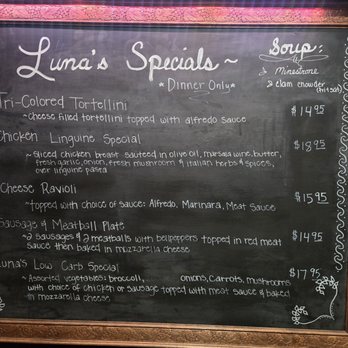 Luna's Specials ~
* Dinner Only *
Soup:
Minestrone
clam chowder
(Fri & Sat)
Tri-Colored Tortellini $14.95
~ cheese filled tortellini topped with alfredo sauce
Chicken Linguine Special $18.95
~ sliced chicken breast sauteed in olive oil, marsala wine, butter,
fresh garlic, onion, fresh mushroom & italian herbs & spices,
over linguine pasta
Cheese Ravioli $15.95
~ topped with choice of sauce: Alfredo, Marinara, Meat Sauce
Sausage & Meatball Plate $14.95
~ 2 sausages & 2 meatballs with bellpeppers topped in red meat
sauce then baked in mozzarella cheese
Luna's Low Carb Special $17.95
~ Assorted vegetables: broccoli, onions, carrots, mushrooms
with choice of chicken or sausage topped with meat sauce & baked
in mozzarella cheese